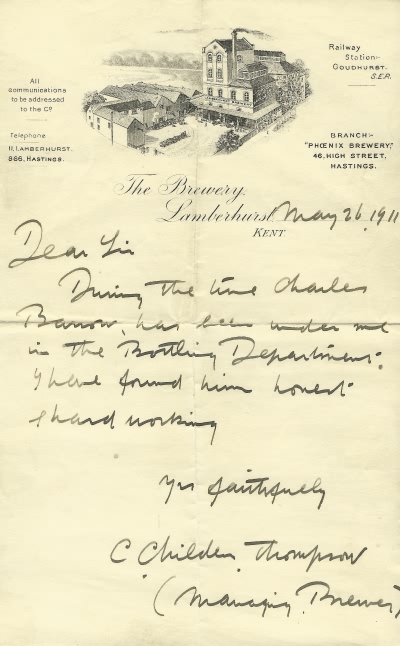 All
communications
to be addressed
to the Co.
Telephone
11, LAMBERHURST.
866, HASTINGS.
Railway
Station:-
GOUDHURST.
S.E.R.
BRANCH:-
"PHŒNIX BREWERY,"
46, HIGH STREET,
HASTINGS.
The Brewery,
Lamberhurst, May 26, 1911
KENT
Dear Sir
During the time Charles
Barrow, has been under me
in the Bottling Department.
I have found him honest
& hard working
Yrs faithfully
C. Childers Thompson
(Managing Brewer)